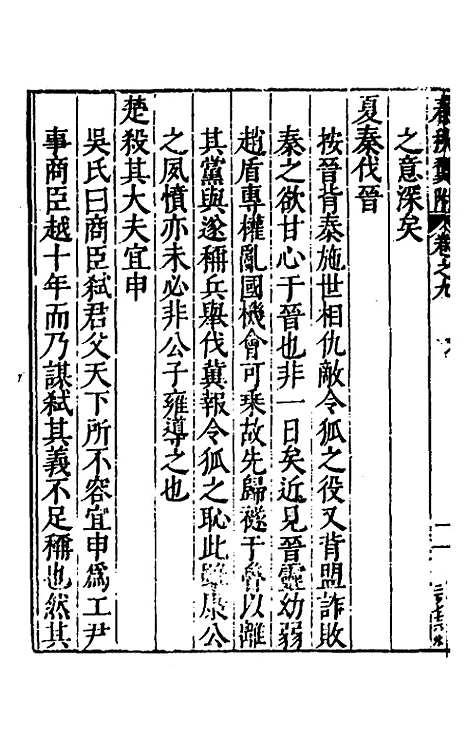 卷之九
之意深矣
夏秦伐晉
按晉背秦施世相仇敵令狐之役又背盟詐敗
秦之欲甘心于晉也非一日矣近見晉靈幼弱
趙盾專權亂國機會可乘故先歸襚于魯以離
其黨與遂稱兵舉伐冀報令狐之恥此雖康公
之夙憤亦未必非公子雍導之也
楚殺其大夫宜申
吳氏曰商臣弑君父天下所不容宜申爲工尹
事商臣越十年而乃謀弑其義不足稱也然其